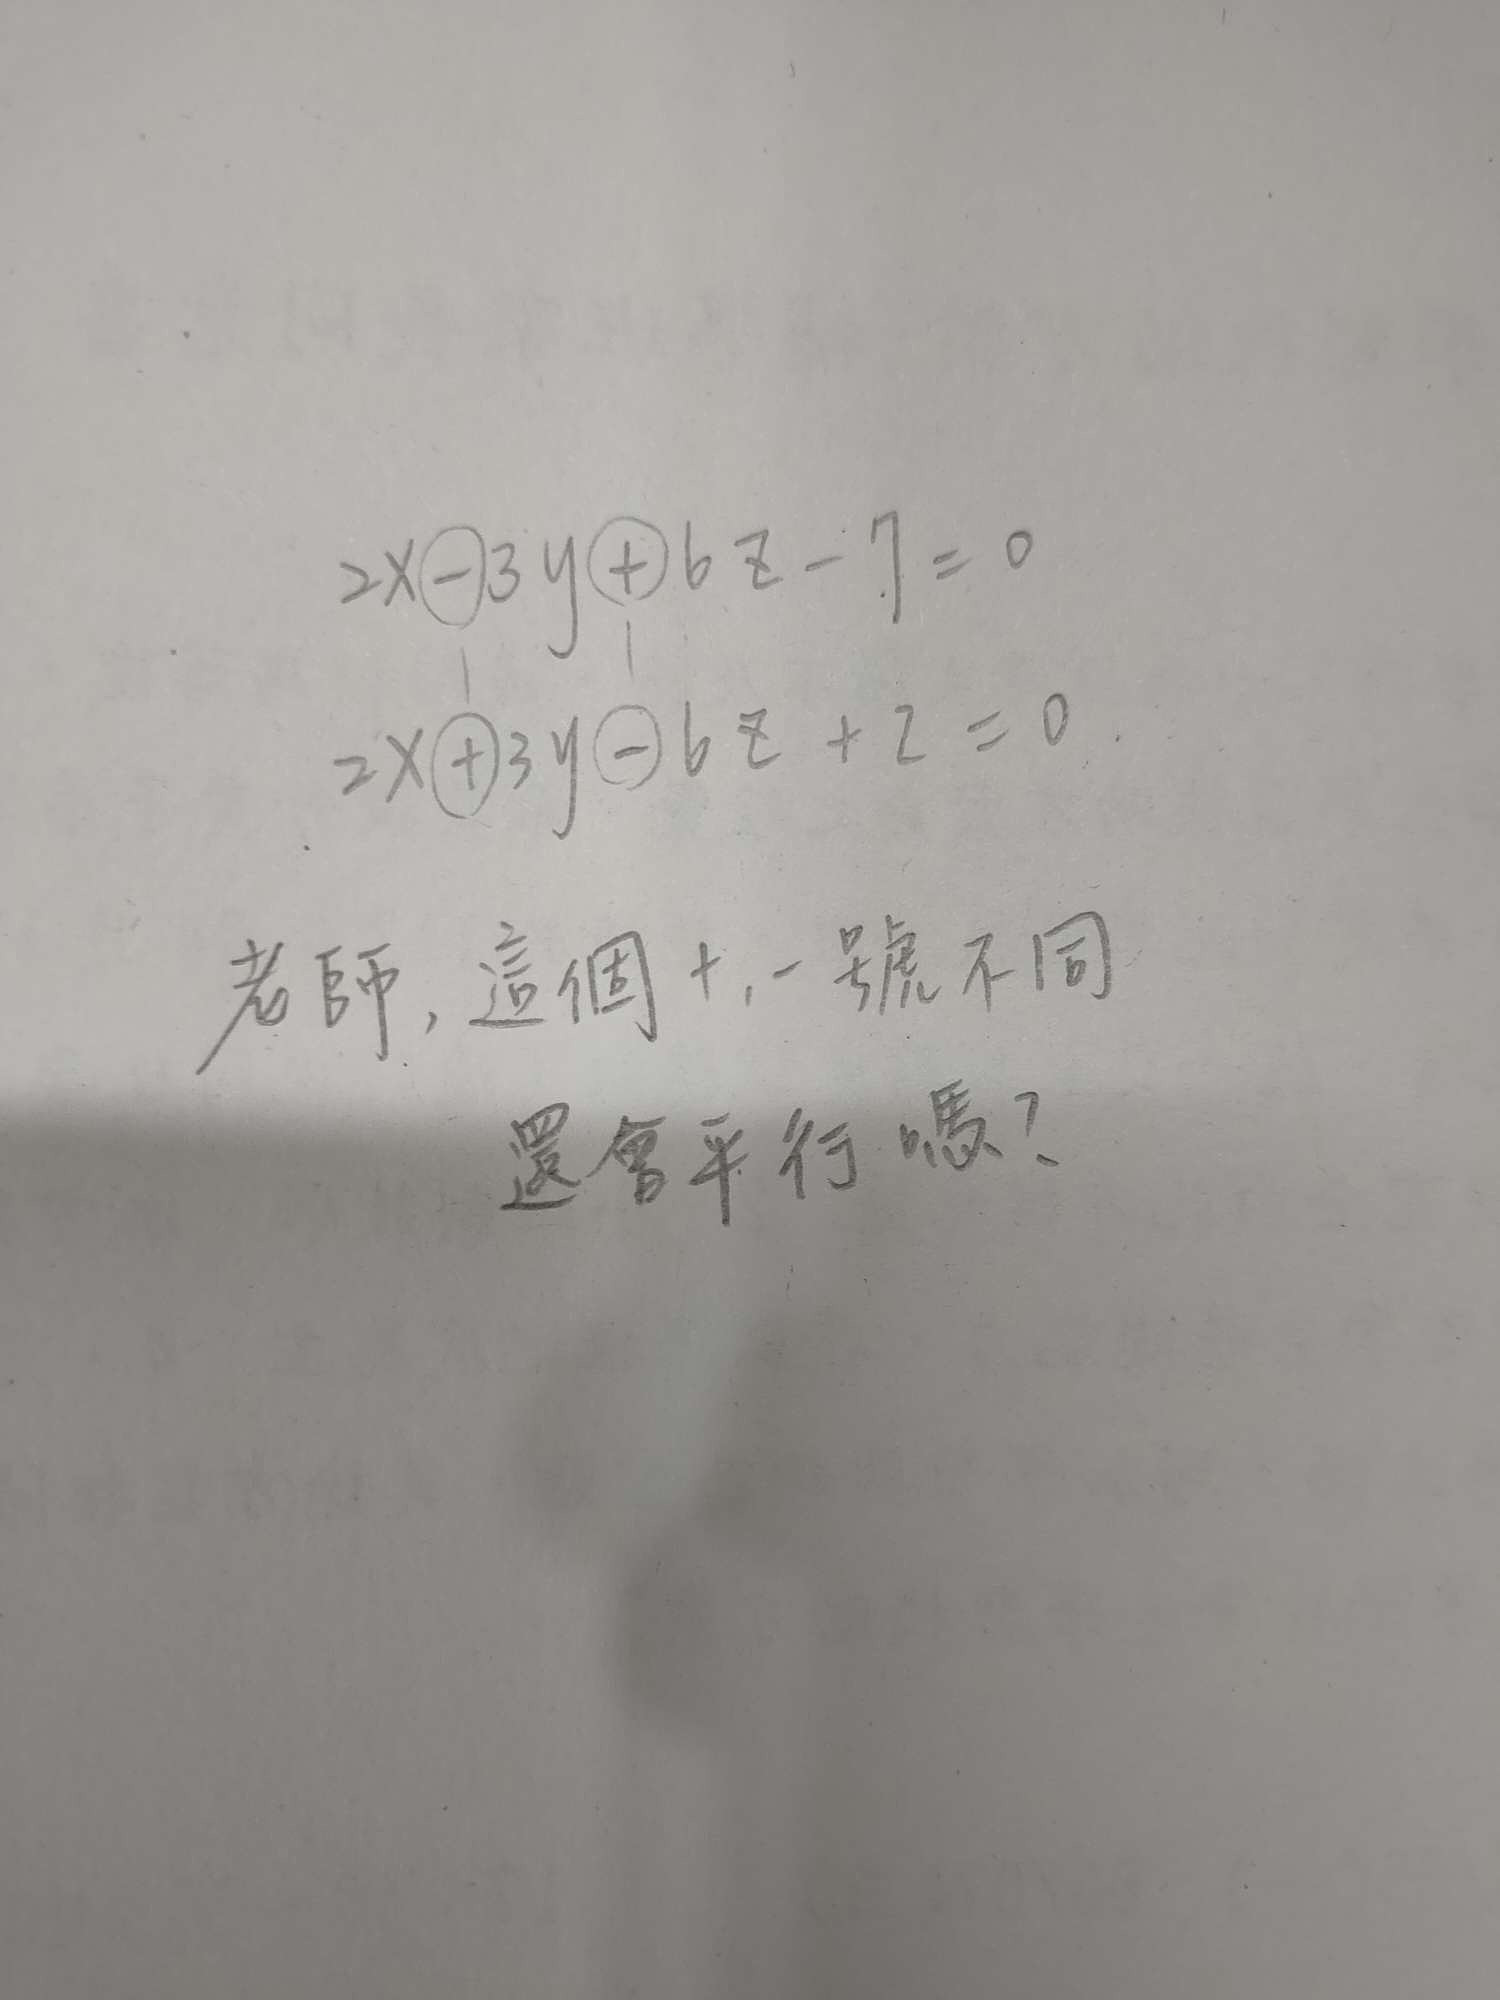 2x-3y+6z-7=0
2x+3y-6z+2=0
老師,這個+,-號不同
還會平行嗎?